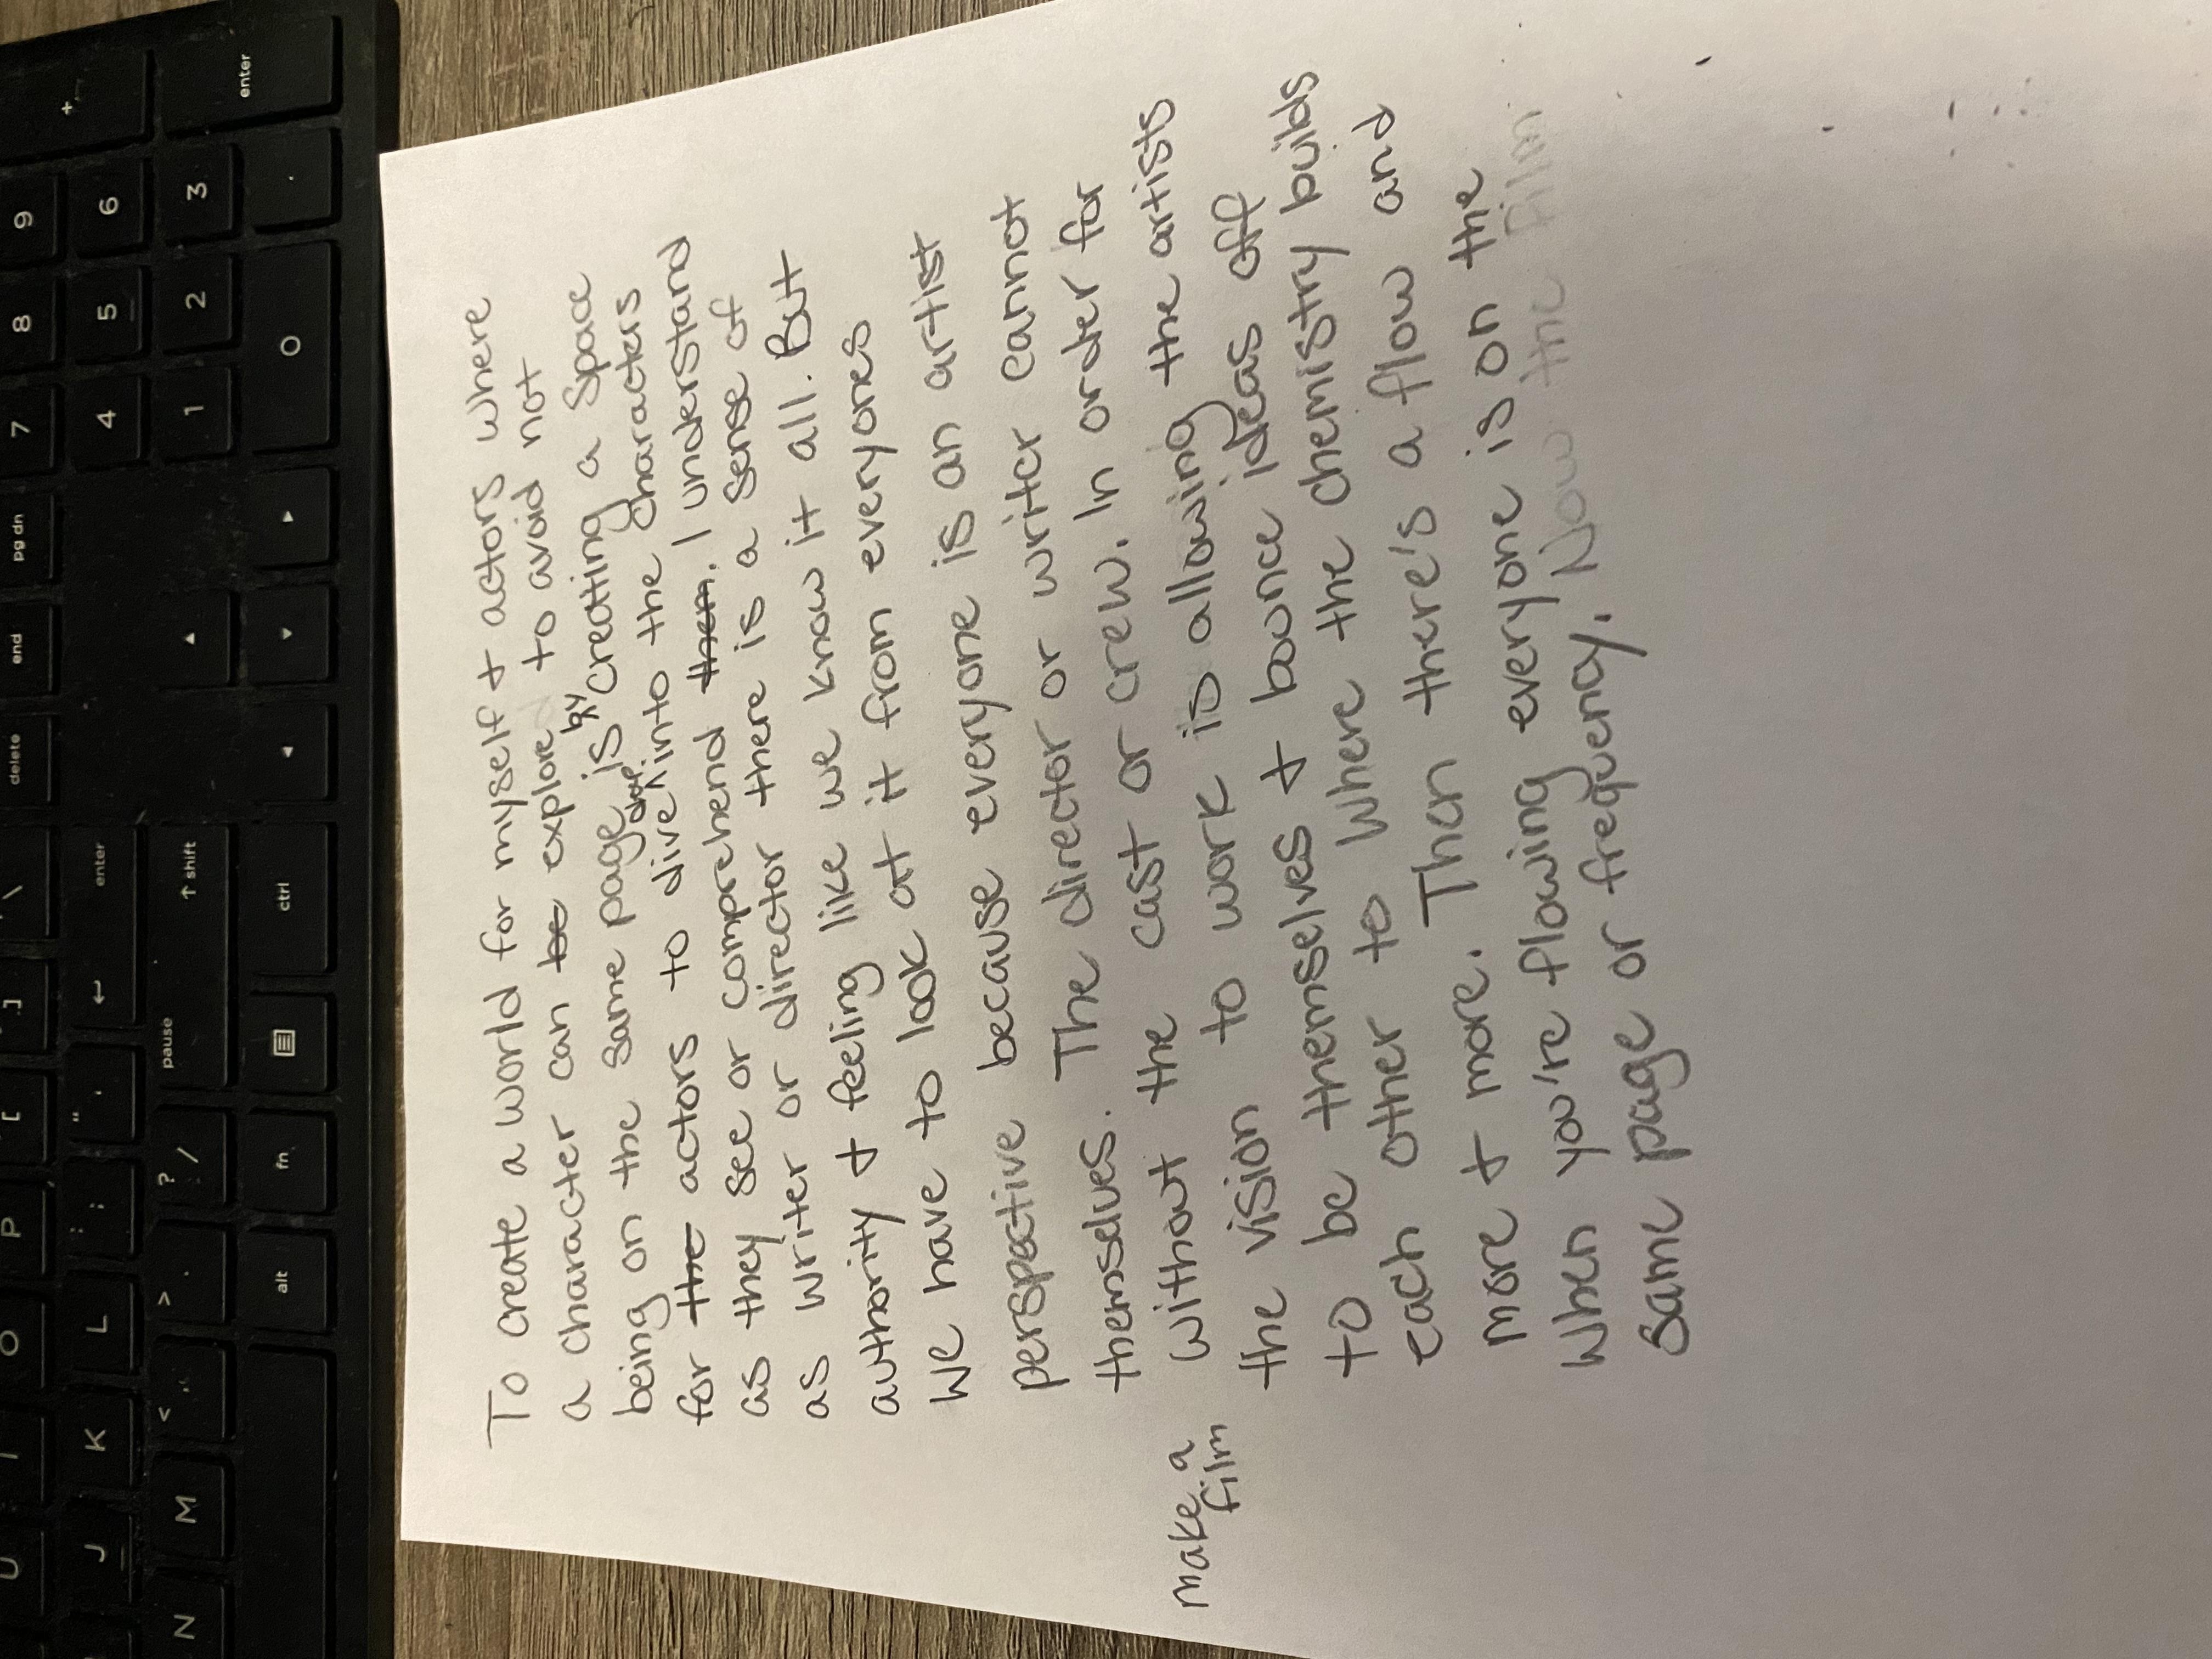 To create a world for myself & actors where
a character can be explore to avoid not
being on the same page is by creating a space
for the actors to dive deep into the characters
as they see or comprehend them. I understand
as writer or director there is a sense of
authority & feeling like we know it all. But
we have to look at it from everyones
perspective because everyone is an artist
themselves. The director or writer cannot
make a film
without the cast or crew. In order for
the vision to work is allowing the artists
to be themselves & bounce ideas off
each other to where the chemistry builds
more & more. Then there's a flow and
when you're flowing everyone is on the
same page or frequency. Now the film
+
9
8
7
pg dn
end
delete
\
]
[
P
O
I
U
6
5
4
enter
"
'
:
;
L
K
J
3
2
1
shift
pause
?
/
>
.
<
,
M
N
enter
.
0
ctrl
fn
alt